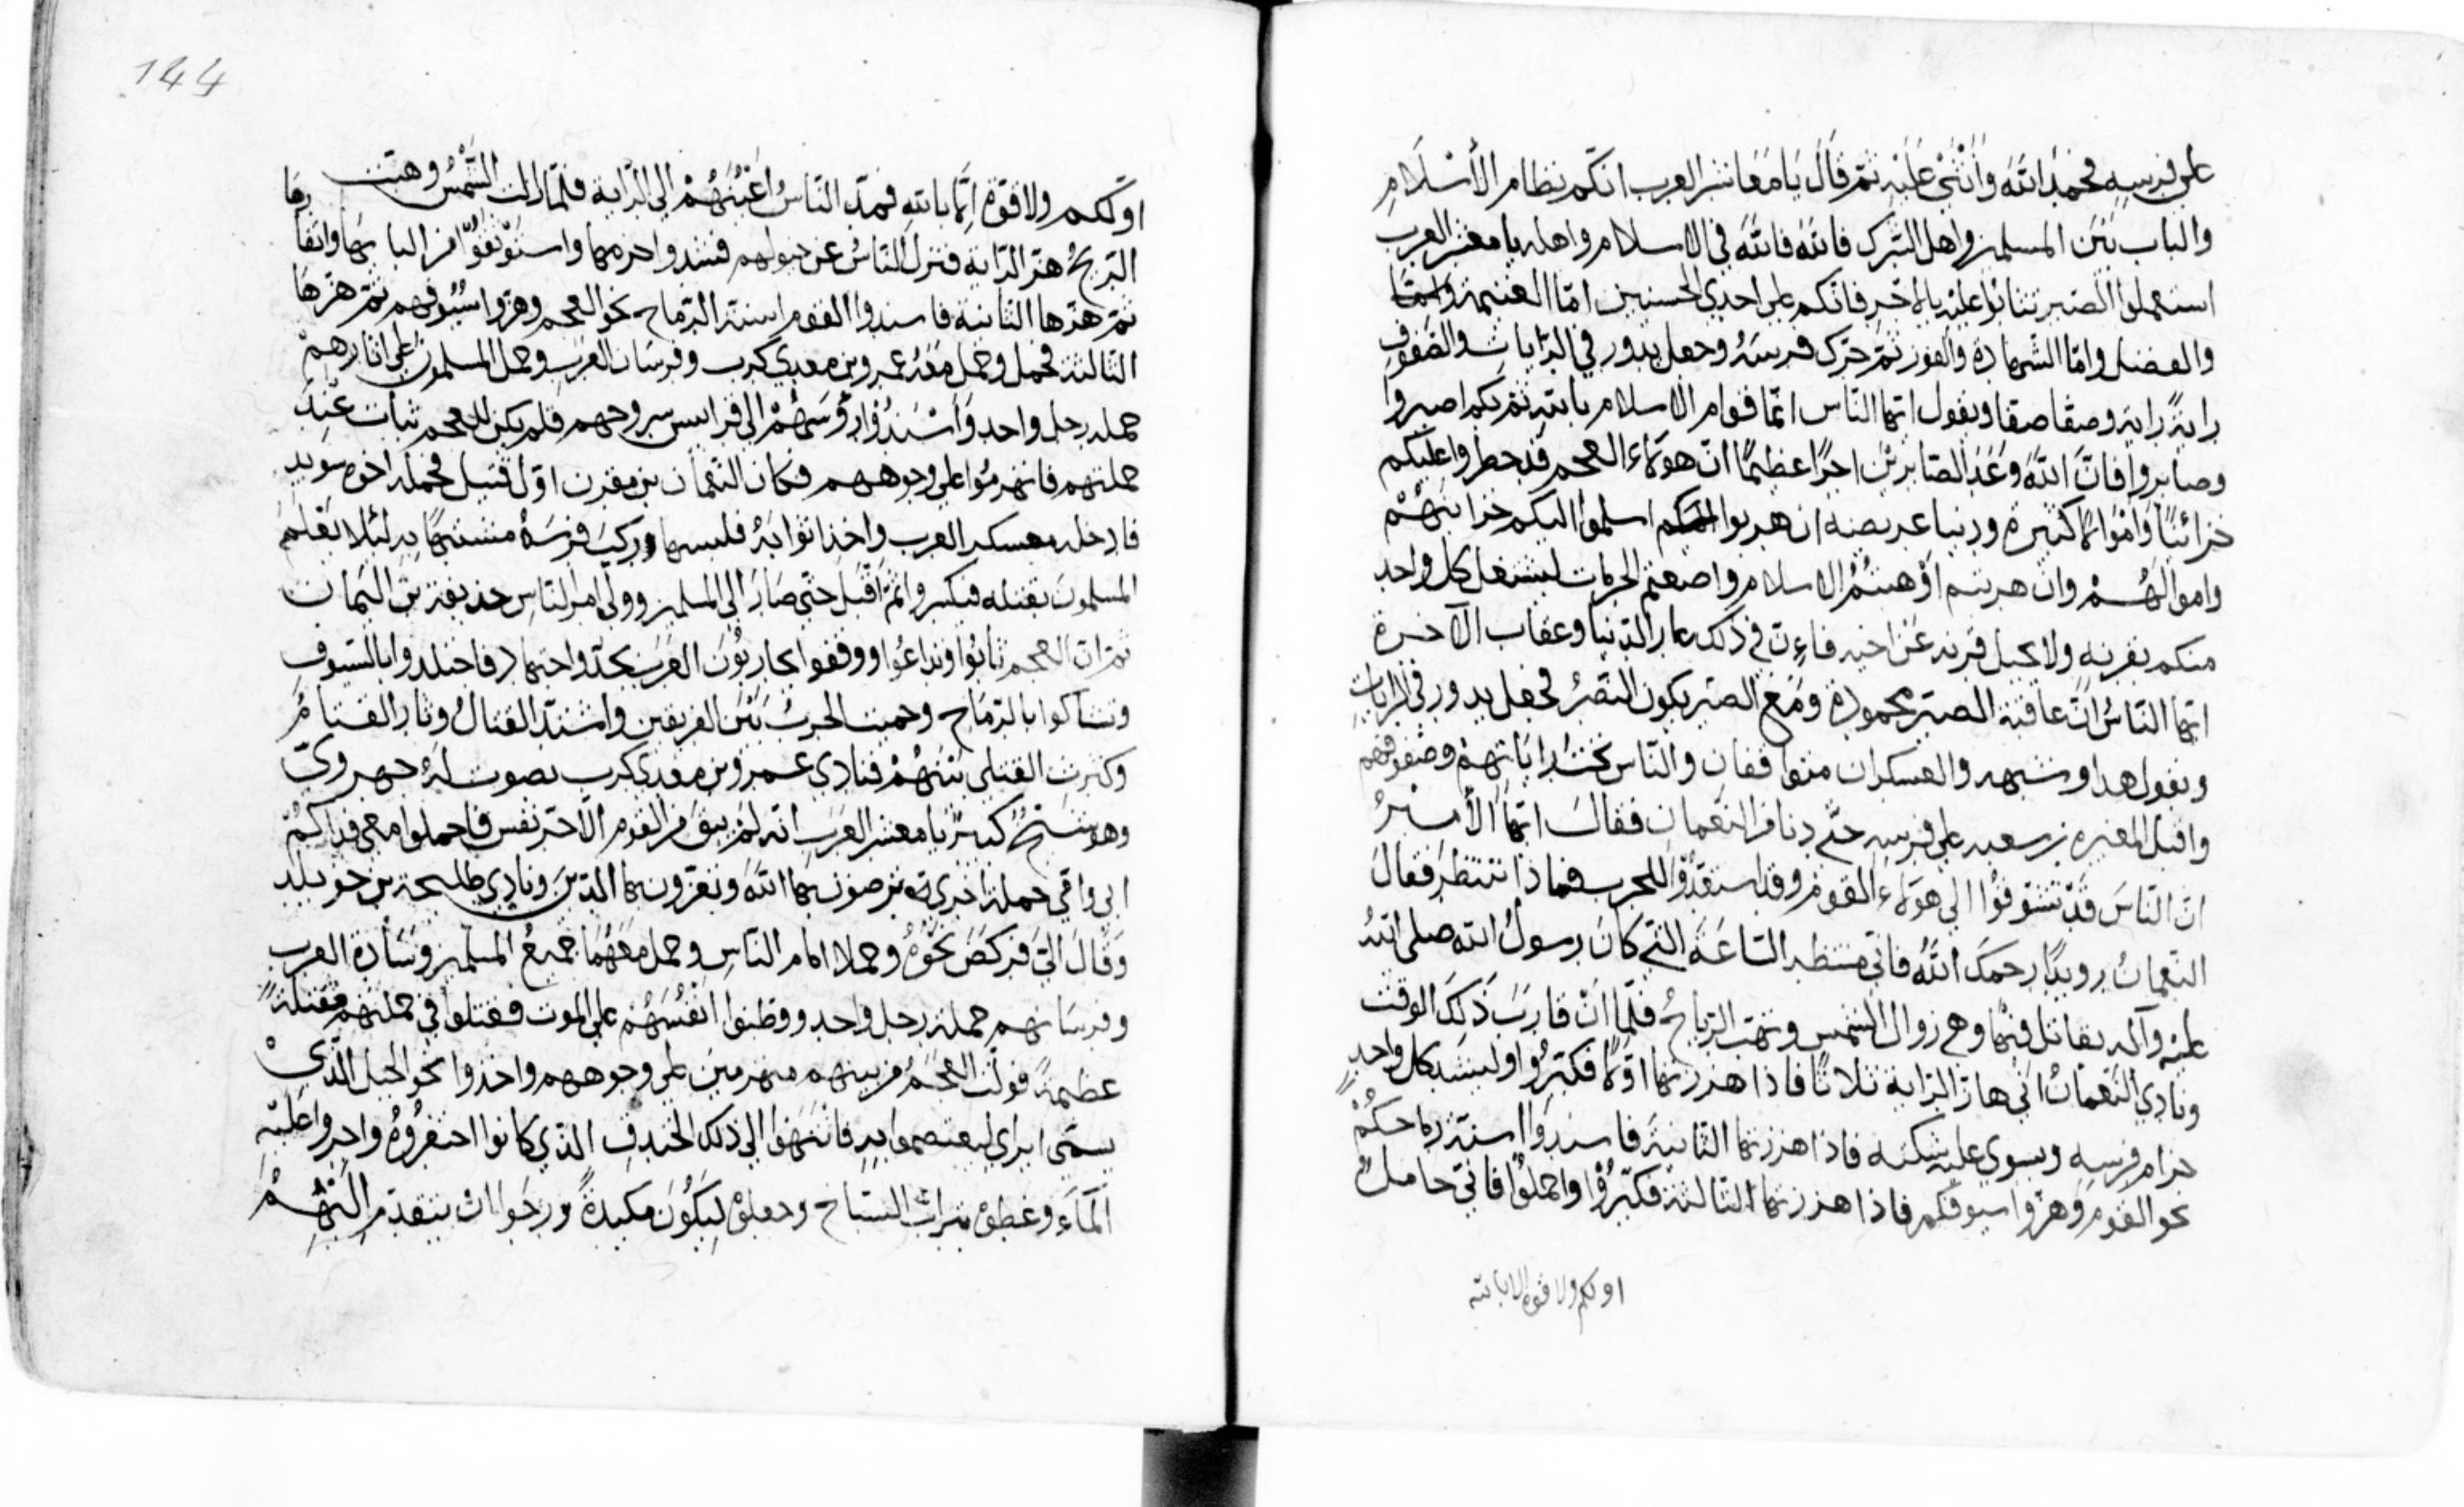 على فرسه فحمد الله وَأَثْنَىٰ عَلَيْهِ ثمّ قَالَ يَا مَعَاشر العرب انّكم نظام الأسْلَامِ
والباب بَيْنَ المسلمين واهل الشّرك فاللّهَ فاللّهَ في الاسلام واهله يا معشر العرب
استعملوا الصّبر تثابوا عليْه بالاجر فانّكم على احدي الحسنيين امّا الغنيمة
والفضل وامّا الشّهادة والفوز ثمّ حرّك فرسَهُ وجعل يدور في الرّايات والصّفوف
رايةً راية وصفّا صفّا ويقول ايّها النّاس انّما قوام الاسلام بالله ثمّ بكم اصبروا
وصابروا فانّ اللّهَ وَعَدَ الصّابرين اجرًا عظيمًا انّ هؤلاء العجم قد خطروا عليكم
خزائنًا وَأمْوالًا كثيرة ودنيا عريضه ان هربوا اسلموا اليكم خزاينهمْ
واموالَهُمْ وان هربتم اوْهنتُمْ الاسلام واضعتم الحرمات ليشغل كل واحد
منكم بقرنه ولا يحيل قرنه عَنْ اخيه فاءنّ في ذلك عار الدّنيا وعقاب الآخرة
ايّها النّاسُ انّ عاقبة الصّبر محمودة ومَعَ الصّبر يكون النّصْرُ فجعل يدور في الرايات
ويقول هذا وشبهه والعسكران متواقفان والنّاس تحْتَ رَاياتهمْ وصفوفهم
واقبل المغيره بن سعبه على فرسِه حتّى دنا من النّعمان فقالَ ايّهَا الأميرُ
انّ النّاسَ قَدْ تشوّفُوْا الي هؤلاء القوم وقد استعدُّوْا للحرب فماذا تنتظر فقالَ
النّعمانُ رويدًا رحمَكَ اللّهُ فانّي منتظر السّاعَةَ الّتي كانَ رسولُ الله صلى اللهُ
عليْه وآله يقاتل فيْها وهي زوال الشّمس وتهبّ الرّياحُ فلَمّا انْ قاربَ ذَلكَ الوقت
ونادي النّعمانُ انّي هازّ الرّاية ثلاثا فاذا هززتها اوّلًا فكبّرُوا وليشدّ كلّ واحدٍ
حزام فرسِه ويسوي عليْه شكته فاذا هززتها الثّانيةَ فاسندوا اسنّة رماحكُمْ
نحو القوم وهزّوا سيوفكم فاذا هززتها الثالثة فكبّرُوْا واحملُوْا فانّي حاملٌ
اوّلكم ولا قوّة الا باللّه
144
اوّلكم ولا قوّة الّا بالله فمدّ النّاسُ اعْيُنَهُمْ الى الرّاية فلمّا زالت الشّمْسُ وهبّت
الرّيحُ هزّ الرّاية فنزل النّاسُ عن خيولهم فشدوا حزمها واستوْثقوْا من البابها واثفارها
ثمّ هزّها الثّانية فاسندوا القوم اسنّة الرّماح نحو العجم وهزّوا سُيُوفهم ثمّ هزّها
الثالثة فحمل وحمل مَعَهُ عمرو بن معدي كرب وفرسان العَرَبِ وحمل المسلمون على اثارهمْ
حملة رجل واحدٍ وَاسْنَدُوا رُؤسَهُمْ الى قرابيس سروجهم فلم يكن للعجم ثبات عنْدَ
حملتهم فانهزموا على وجوههم فكان النّعمان بن مقرن اوّل قتيل فحمله اخوه سويد
فادخله معسكر العرب واخذ اثوابَهُ فلبسها وركبَ فرسَهُ متشبّهًا به لئلا يعْلمَ
المسلمون بقتله فينكسروا ثمّ اقْبَلَ حتّى صَارَ الى المسلمين وولى امر النّاسِ حذيفة بن اليمان
ثمّ انّ العجم ثابوا وتداعُوا ووقفوا يحاربُوْن العرَبَ بجدّ واجتهاد فاجتلدوا بالسّيوف
وتشاكوا بالرّماح وحميت الحربُ بَيْنَ الفريقين واشتدّ القتالُ وثار القتامُ
وكثرت القتلى بَيْنَهُمْ فنادي عمرو بن معدي كرب بصوت لَهُ جهرويّ
وهو شيْخٌ كبيْر يا معشر العَرَبِ انّه لمْ يبق من القوم الّا آخر نفس فاحملوا معي فداكمْ
ابي وامّي حملة اخرى ترضون بها اللّهَ وتعزّون بها الدّيْنَ ونادي طليحة بن خويلد
وَقالَ اليّ فركضَ نَحْوَهُ وحملا امام النّاسِ وحمل مَعَهُمَا جميعُ المسلمين وَسَادة العرب
وفرسانهم حملة رجل واحد ووطّنوا انْفُسَهُمْ على الموت فقتلوا في حملتهم مقتلةً
عظيمةً فولّت العجَمُ من بينهم منهزمين على وجوههم واخذوا نحو الجبل الّذيْ
يسمّى ايراي ليعتصموا به فانتهوْا الي ذلك الخندق الّذي كانوا احتفرُوْهُ واجروا عَلَيْهِ
الْمَاءَ وغطوْه بتراب السّباخ وجعلوْه لِيَكُوْنَ مكيدةً ورجَوا ان يتقدّم اليْهِمْ